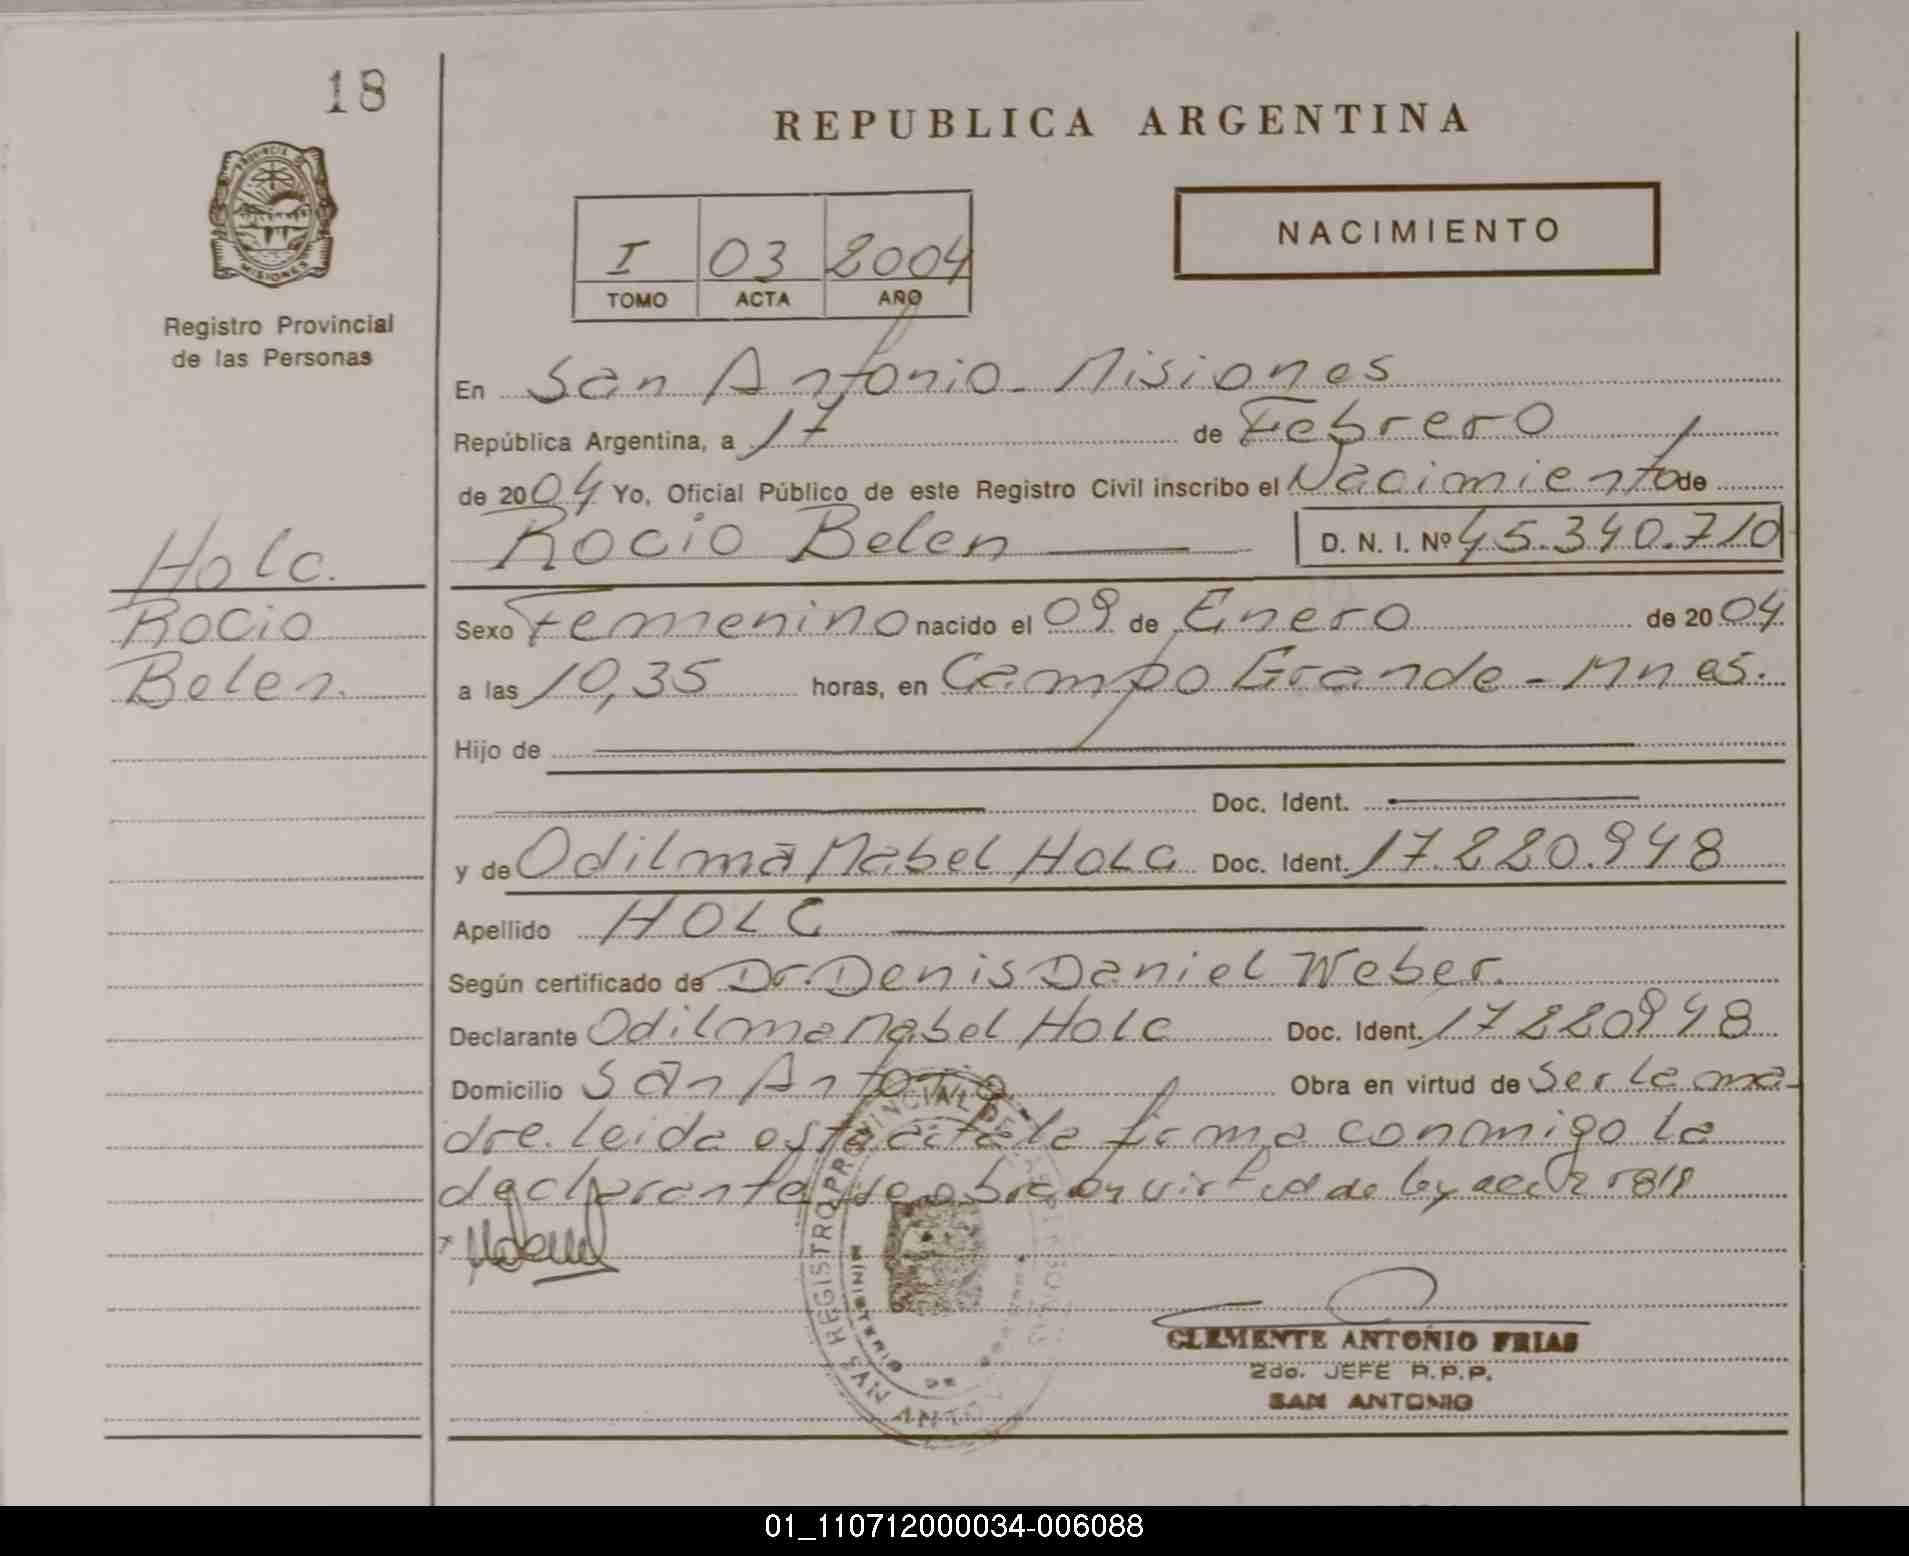 18
REPUBLICA ARGENTINA
PROVINCIA DE
MISIONES
Registro Provincial
de las Personas
I 03 2004
TOMO ACTA AÑO
NACIMIENTO
En San Antonio - Misiones
República Argentina, a 17 de Febrero
de 2004 Yo, Oficial Público de este Registro Civil inscribo el Nacimiento de
Rocio Belen D. N. I. Nº 45.340.710
Holc.
Rocio
Belen.
Sexo Femenino nacido el 09 de Enero de 2004
a las 10,35 horas, en Campo Grande - Mnes.
Hijo de
Doc. Ident.
y de Odilma Mabel HOLC Doc. Ident. 17.220.948
Apellido HOLC
Según certificado de Dr. Denis Daniel Weber.
Declarante Odilma Mabel Holc Doc. Ident. 17220948
Domicilio San Antonio Obra en virtud de Ser la ma-
dre. leida esta acta la firma conmigo la
declarante obra en virtud de ley
REGISTRO PROVINCIAL DE LAS PERSONAS
MINISTERIO DE
CLEMENTE ANTONIO FRIAS
2do. JEFE R.P.P.
SAN ANTONIO
01_110712000034-006088